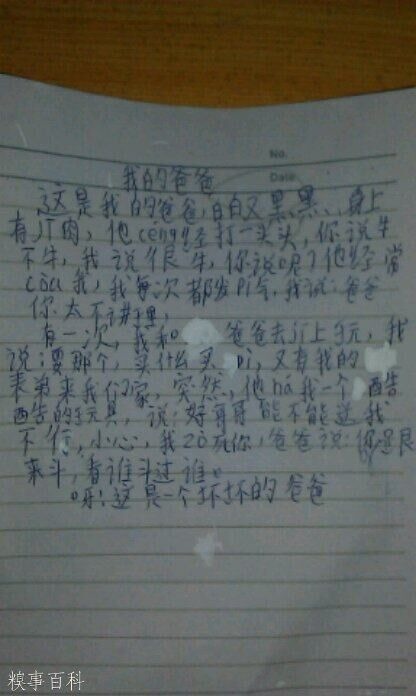 No.
Date
我的爸爸
这是我的爸爸,白白又黑黑、身上
有jī肉,他céng经打一头头,你说牛
不牛,我说很牛,你说呢?他经常
còu我,我每次都发pí气,我说:爸爸
你太不讲理,
有一次,我和 爸爸去jī上玩,我
说:要那个,买什么买 pì,又有我的
表弟来我们家,突然,他ná我一个酷
酷的玩具,说:好哥哥能不能送我
不行,小心,我zòu你,爸爸说:你还
来斗,看谁斗过谁。
呀!这是一个坏坏的爸爸
糗事百科